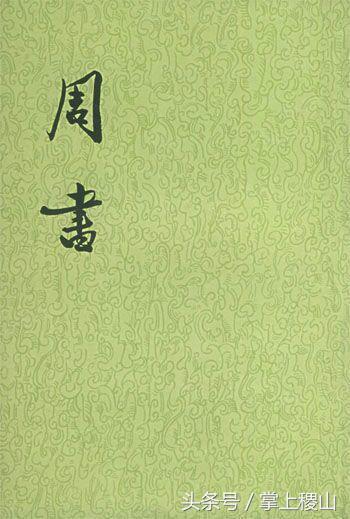 周書
头条号 / 掌上稷山